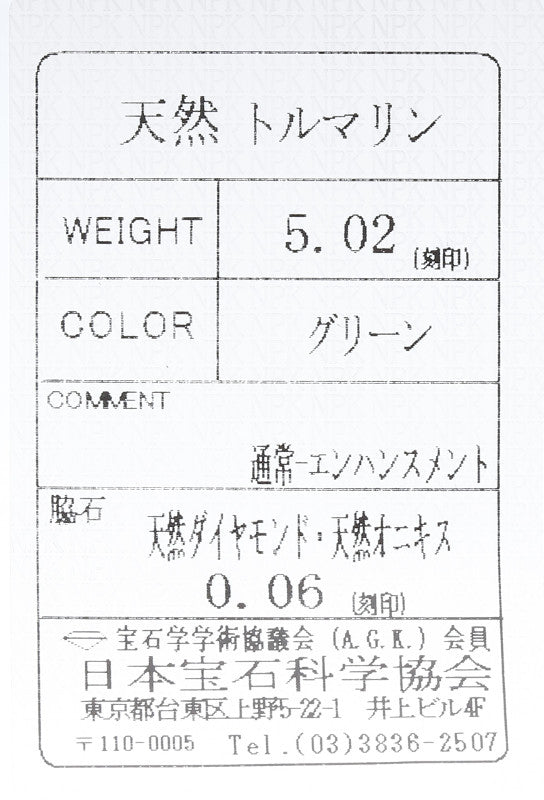 天然 トルマリン
WEIGHT 5.02 (刻印)
COLOR グリーン
COMMENT
通常-エンハンスメント
脇石 天然ダイヤモンド・天然オニキス
0.06 (刻印)
宝石学学術協議会 (A.G.K.) 会員
日本宝石科学協会
東京都台東区上野5-22-1 井上ビル4F
〒110-0005 Tel.(03)3836-2507